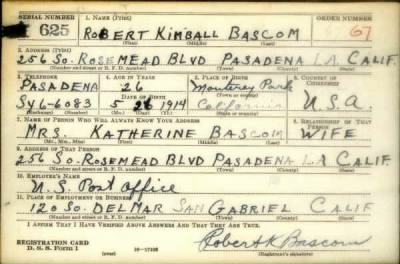 SERIAL NUMBER 1. NAME (Print) ORDER NUMBER
E 625 ROBERT KIMBALL BASCOM 67
(First) (Middle) (Last)
2. ADDRESS (Print)
256 So. ROSEMEAD BLVD PASADENA LA CALIF.
(Number and street or R. F. D. number) (Town) (County) (State)
3. TELEPHONE 4. AGE IN YEARS 5. PLACE OF BIRTH 6. COUNTRY OF CITIZENSHIP
PASADENA 26 Monterey Park
DATE OF BIRTH
SY6-6083 5 26 1914 California U.S.A.
(Exchange) (Number) (Mo.) (Day) (Yr.) (Town or county) (State or country)
7. NAME OF PERSON WHO WILL ALWAYS KNOW YOUR ADDRESS 8. RELATIONSHIP OF THAT PERSON
MRS. KATHERINE BASCOM WIFE
(Mr., Mrs., Miss) (First) (Middle) (Last)
9. ADDRESS OF THAT PERSON
256 So. ROSEMEAD BLVD PASADENA LA CALIF.
(Number and street or R. F. D. number) (Town) (County) (State)
10. EMPLOYER'S NAME
U.S. Post Office
11. PLACE OF EMPLOYMENT OR BUSINESS
120 So. DELMAR SAN GABRIEL CALIF
(Number and street or R. F. D. number) (Town) (County) (State)
I AFFIRM THAT I HAVE VERIFIED ABOVE ANSWERS AND THAT THEY ARE TRUE.
REGISTRATION CARD
D. S. S. Form 1 (over) 16-17105 Robert K Bascom
(Registrant's signature)